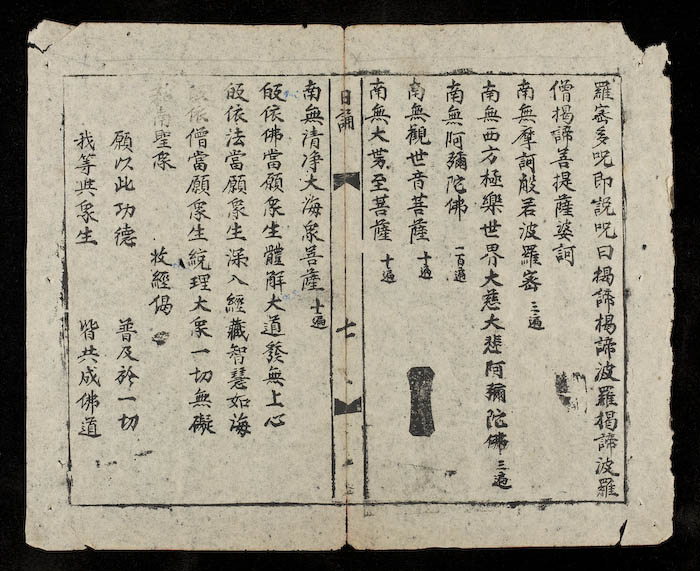 羅密多咒即說咒曰揭諦揭諦波羅揭諦波羅
僧揭諦菩提薩婆訶
南無摩訶般若波羅密 三遍
南無西方極樂世界大慈大悲阿彌陀佛 三遍
南無阿彌陀佛 一百遍
南無觀世音菩薩 十遍
南無大势至菩薩 十遍
日誦 七
南無清净大海衆菩薩 十遍
皈依佛當願衆生體解大道發無上心
皈依法當願衆生深入經藏智慧如海
皈依僧當願衆生統理大衆一切無礙
南聖衆 收經偈
願以此功德 普及於一切
我等共衆生 皆共成佛道